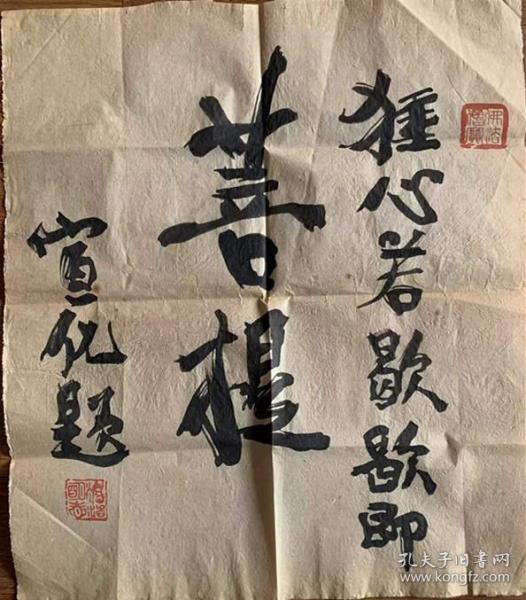 狂心若歇歇即
菩提
宣化題
孔夫子旧书网
www.kongfz.com